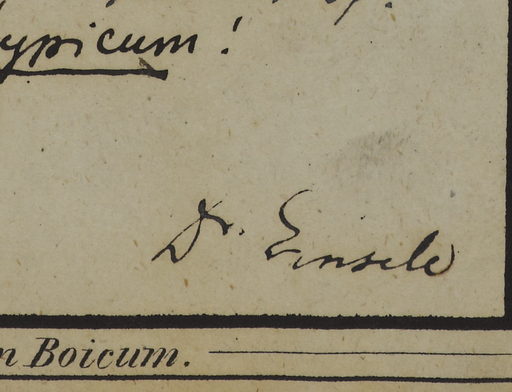 ypicum!
Dr. Einsele
n Boicum.